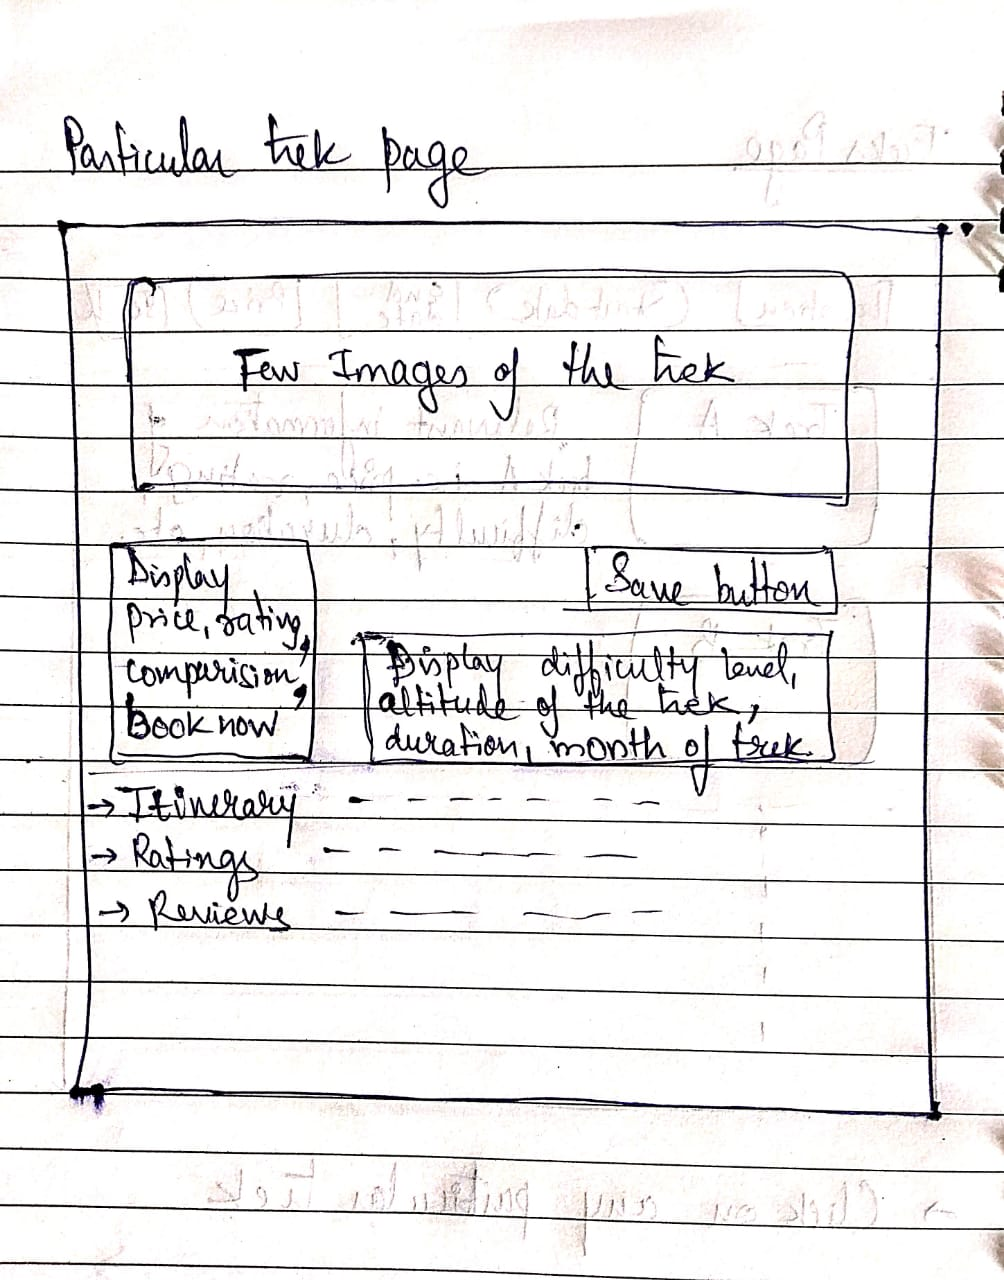 Particular trek page
Few Images of the trek
Display
price, rating,
comparision,
Book now
Save button
Display difficulty level,
altitude of the trek,
duration, month of trek.
→ Itinerary - - - - - - -
→ Ratings - - - - -
→ Reviews - - - -